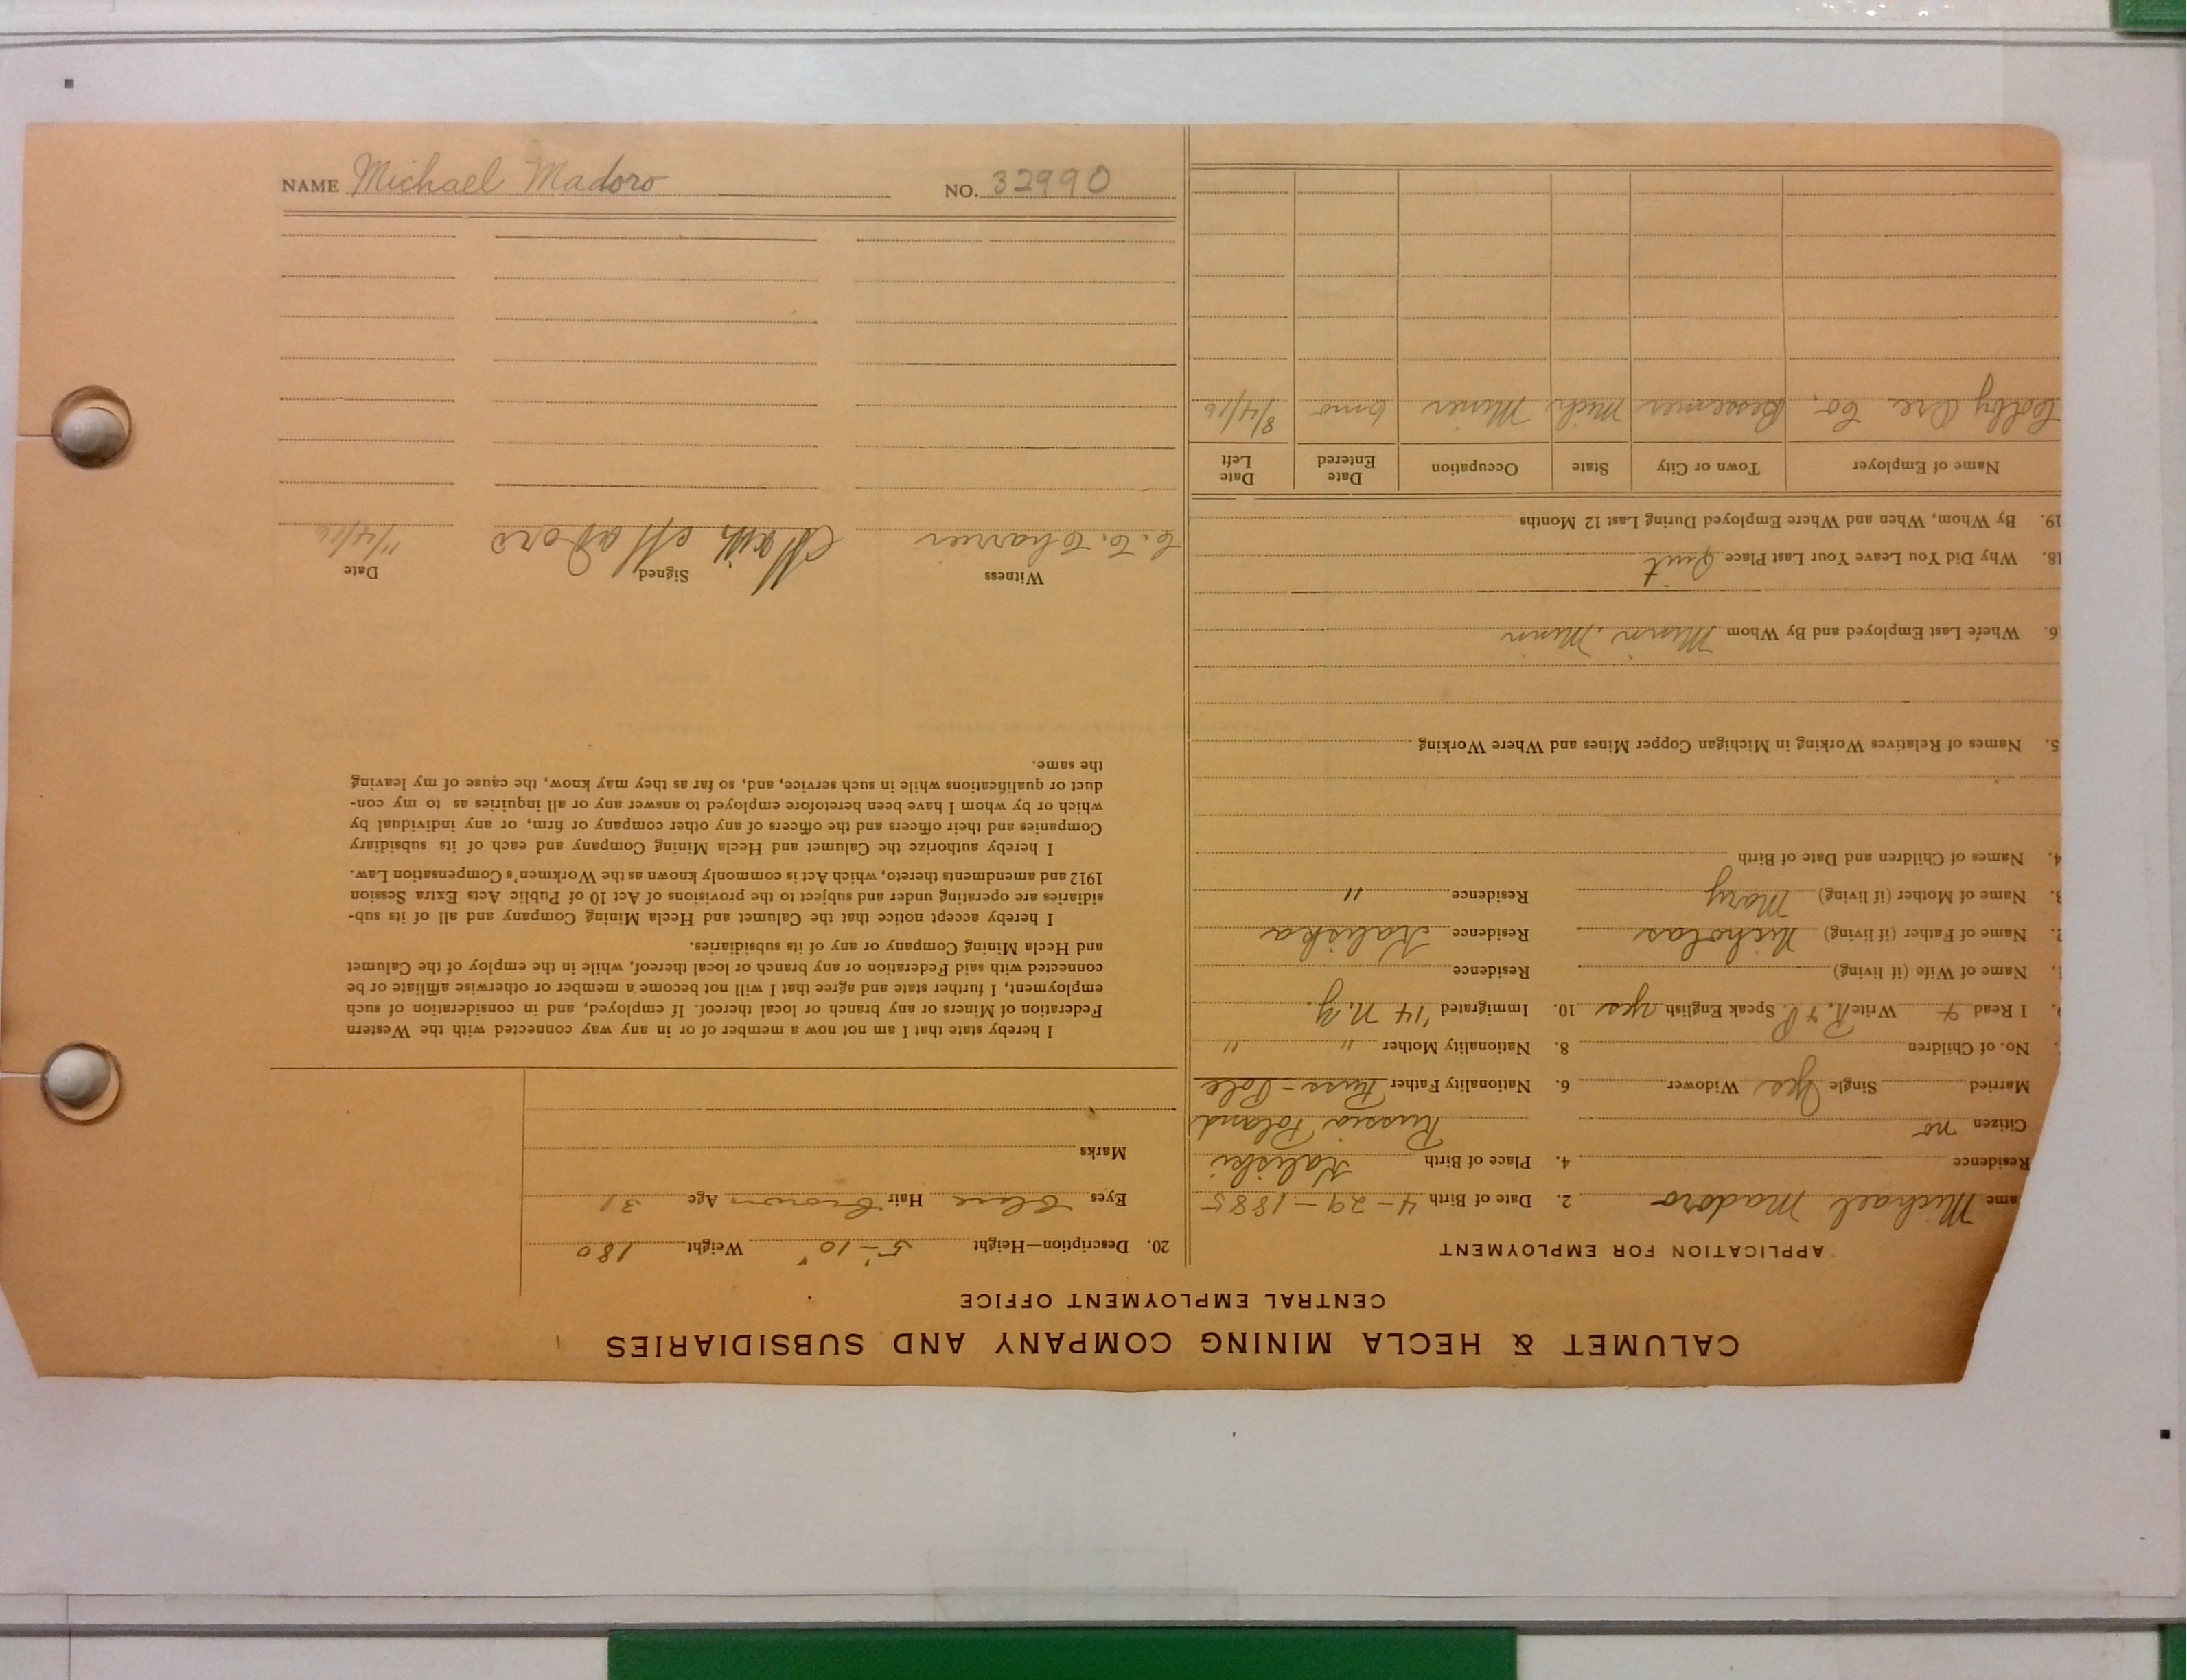 NAME Michael Madoro NO. 32990
CALUMET & HECLA MINING COMPANY AND SUBSIDIARIES
CENTRAL EMPLOYMENT OFFICE
APPLICATION FOR EMPLOYMENT
ame Michael Madoro 2. Date of Birth 4-29-1885
Residence 4. Place of Birth Kaliski
Citizen no Russia Poland
Married Single Yes Widower 6. Nationality Father Russ-Pole
No. of Children 8. Nationality Mother " "
I Read + Write R. + P. Speak English yes 10. Immigrated '14 N.Y.
Name of Wife (if living) Residence
2. Name of Father (if living) Nicholas Residence Kaliska
3. Name of Mother (if living) Mary Residence "
4. Names of Children and Date of Birth
5. Names of Relatives Working in Michigan Copper Mines and Where Working
6. Where Last Employed and By Whom Minn. Minn
18. Why Did You Leave Your Last Place Quit
19. By Whom, When and Where Employed During Last 12 Months
Name of Employer Town or City State Occupation Date Entered Date Left
Colby Ore Co. Bessemer Mich Miner 6mo 8/4/16
20. Description—Height 5'-10" Weight 180
Eyes Blue Hair Brown Age 31
Marks
I hereby state that I am not now a member of or in any way connected with the Western
Federation of Miners or any branch or local thereof. If employed, and in consideration of such
employment, I further state and agree that I will not become a member or otherwise affiliate or be
connected with said Federation or any branch or local thereof, while in the employ of the Calumet
and Hecla Mining Company or any of its subsidiaries.
I hereby accept notice that the Calumet and Hecla Mining Company and all of its sub-
sidiaries are operating under and subject to the provisions of Act 10 of Public Acts Extra Session
1912 and amendments thereto, which Act is commonly known as the Workmen's Compensation Law.
I hereby authorize the Calumet and Hecla Mining Company and each of its subsidiary
Companies and their officers and the officers of any other company or firm, or any individual by
which or by whom I have been heretofore employed to answer any or all inquiries as to my con-
duct or qualifications while in such service, and, so far as they may know, the cause of my leaving
the same.
Witness Signed Date
C. C. Madoro 11/4/16